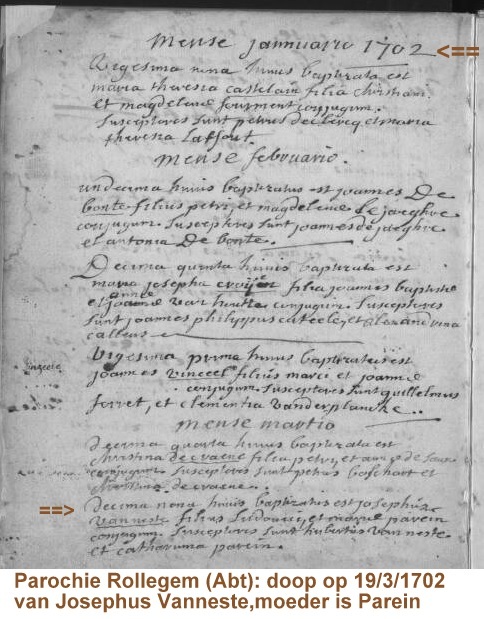 mense jannuario 1702 <==
Vigesima nona huius baptizata est
maria theresia castelain filia christiani
et magdelene fourment conjugum.
susceptores sunt petrus declercq et maria
theresia laffout.
mense februario.
undecima huius baptizatus est joannes De
bonte filius petri et magdelene De jaeghre
conjugum. susceptores sunt joannes de jaeghre
et antonia De bonte.
Decima quinta huius baptizata est
maria josepha filia joannis baptiste
et joanne van houtte conjugum. susceptores
sunt joannes philippus et alexandrina
Vigesima prima huius baptizatus est
joannes vinceel filius marci et joanne
conjugum. susceptores sunt guillelmus
ferret, et clementia vanderplancke..
mense martio
decima quarta huius baptizata est
christina decraene filia petri, et
conjugum susceptores sunt petrus boschart et
decraene.
==> decima nona huius baptizatus est josephus
vanneste filius Ludovici, et marie parein
conjugum. susceptores sunt hubertus van neste
et catharina parein.
Parochie Rollegem (Abt): doop op 19/3/1702
van Josephus Vanneste,moeder is Parein